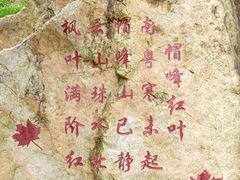 帽峰红叶
南粤寒未起
帽峰山已静
云山珠水
枫叶满阶红